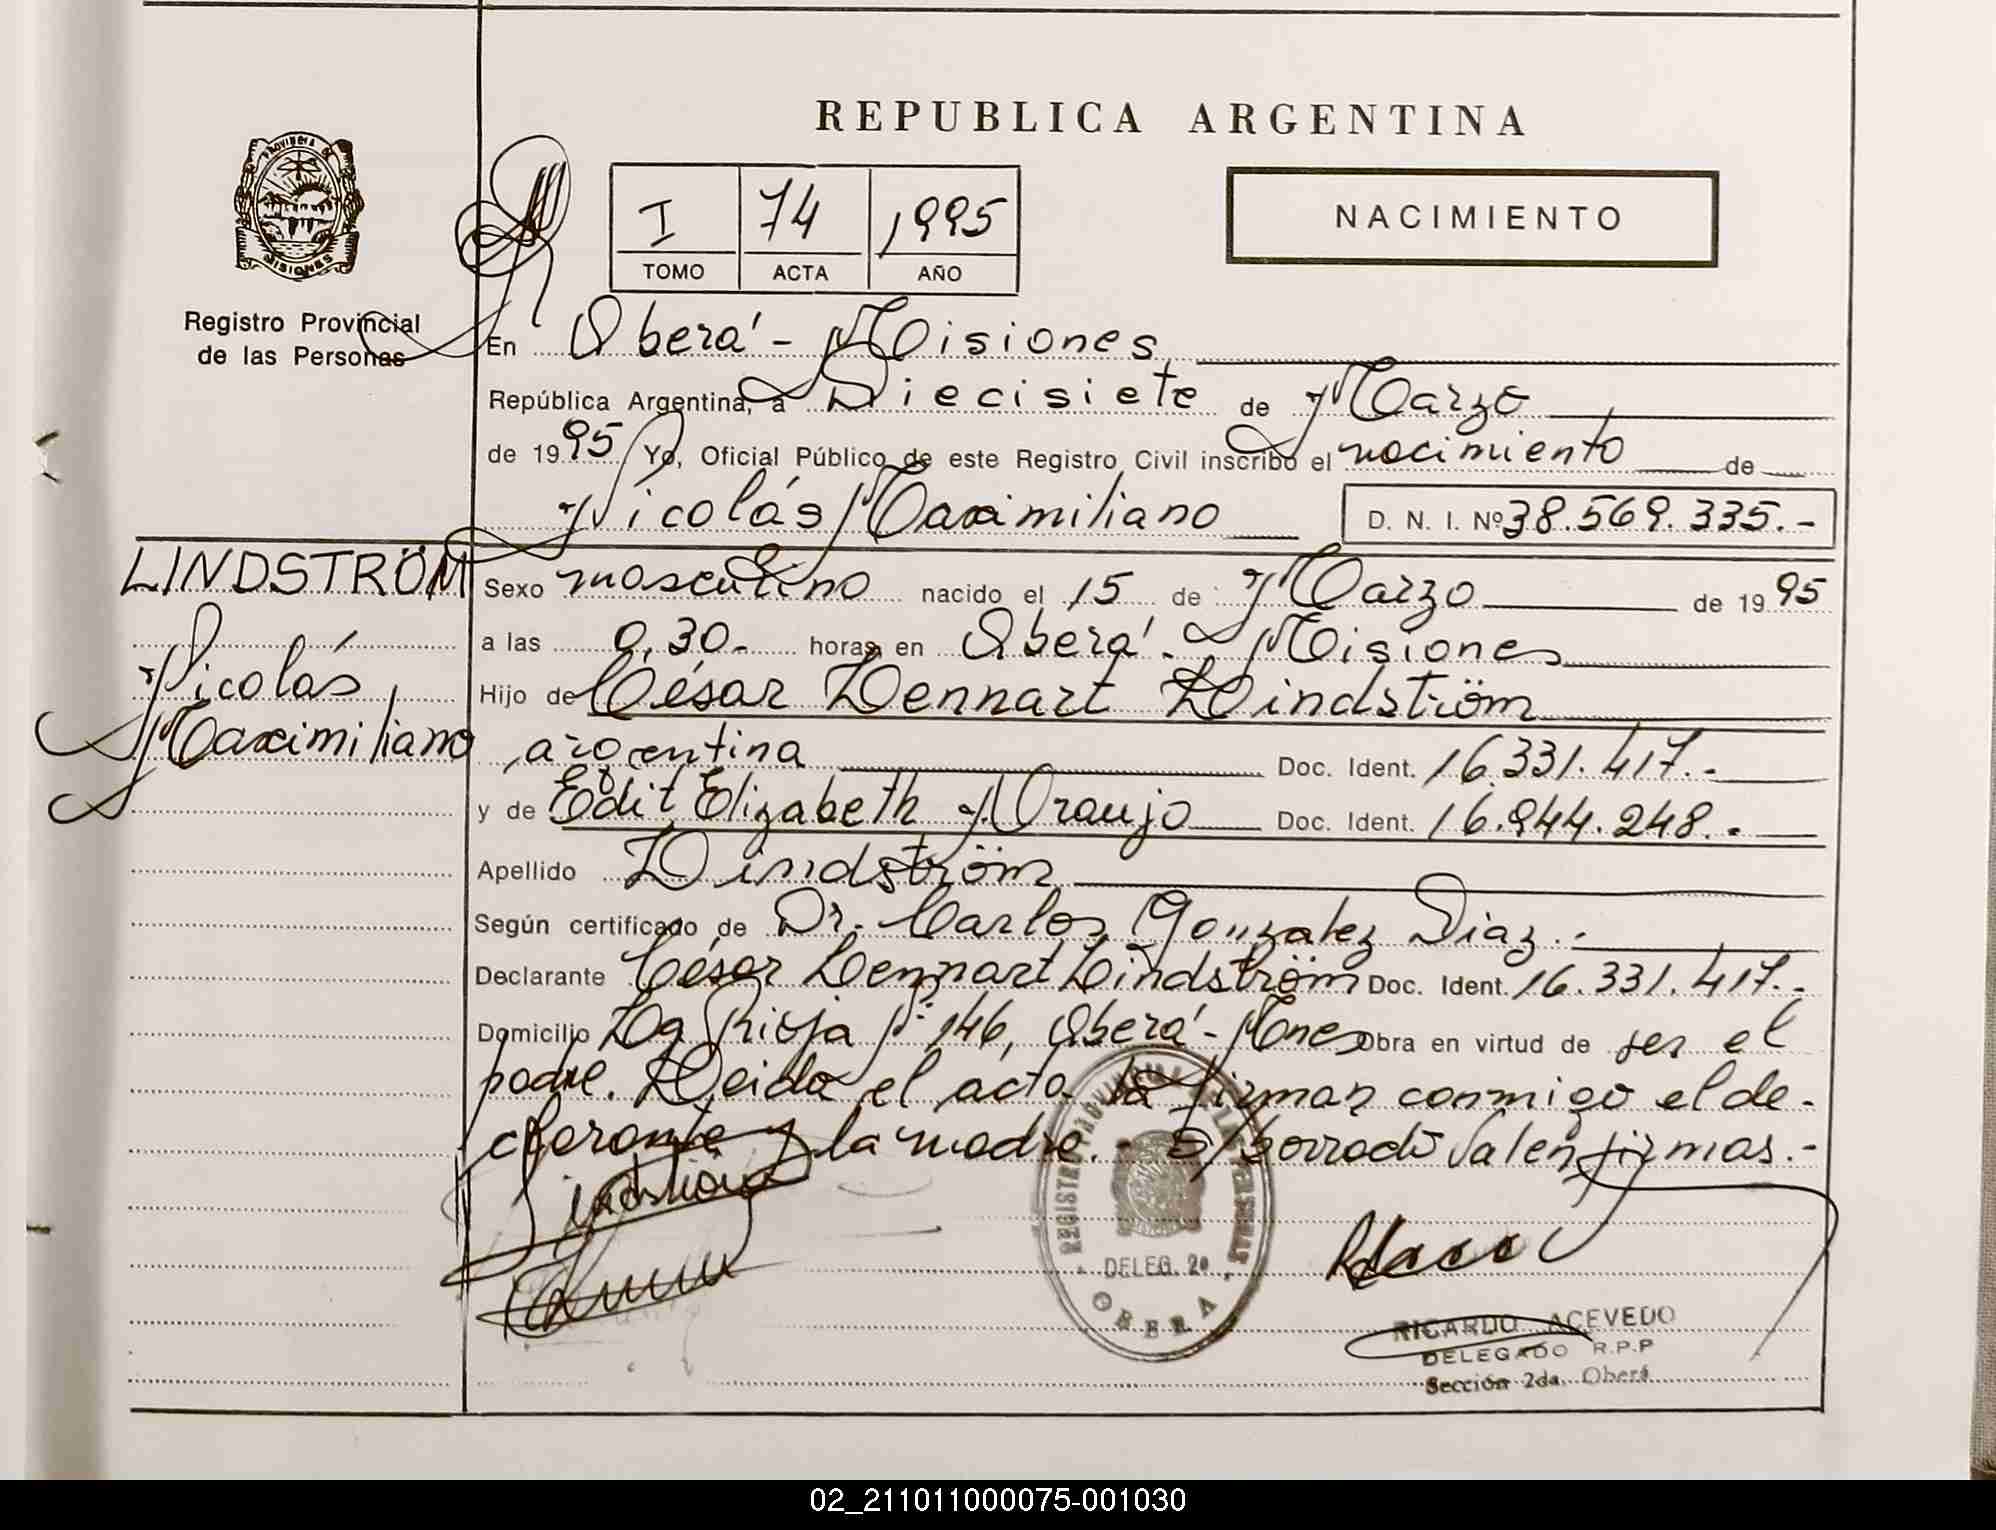 REPUBLICA ARGENTINA
PROVINCIA DE
MISIONES
Registro Provincial
de las Personas
I 74 1995
TOMO ACTA AÑO
NACIMIENTO
En Oberá - Misiones
República Argentina, a Diecisiete de Marzo
de 1995 Yo, Oficial Público de este Registro Civil inscribo el nacimiento de
Nicolás Maximiliano D. N. I. Nº 38.569.335.-
LINDSTRÖM
Nicolás
Maximiliano
Sexo masculino nacido el 15 de Marzo de 1995
a las 0,30.- horas en Oberá - Misiones
Hijo de César Lennart Lindström
argentina Doc. Ident. 16.331.417.-
y de Edit Elizabeth Araujo Doc. Ident. 16.944.248.-
Apellido Lindström
Según certificado de Dr. Carlos Gonzalez Diaz.-
Declarante César Lennart Lindström Doc. Ident. 16.331.417.-
Domicilio La Rioja Nº 146, Oberá - Mnes Obra en virtud de ser el
padre. Leida el acta la firman conmigo el de-
clarante y la madre.- S/borrado Valen firmas.-
Lindström
REGISTRO PROVINCIAL DE LAS PERSONAS
DELEG. 2ª
OBERA
RICARDO ACEVEDO
DELEGADO R.P.P
Sección 2da. Oberá
02_211011000075-001030